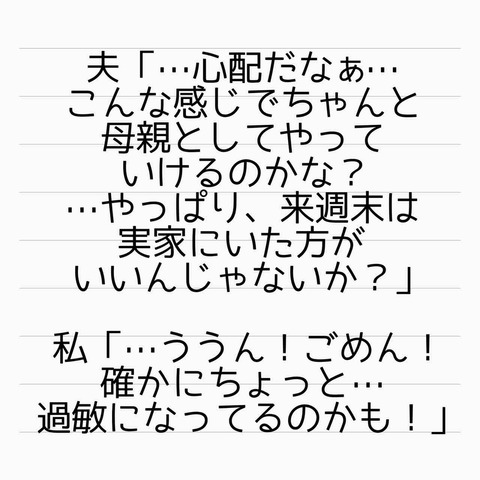 夫「…心配だなぁ…
こんな感じでちゃんと
母親としてやって
いけるのかな？
…やっぱり、来週末は
実家にいた方が
いいんじゃないか？」
私「…ううん！ごめん！
確かにちょっと…
過敏になってるのかも！」